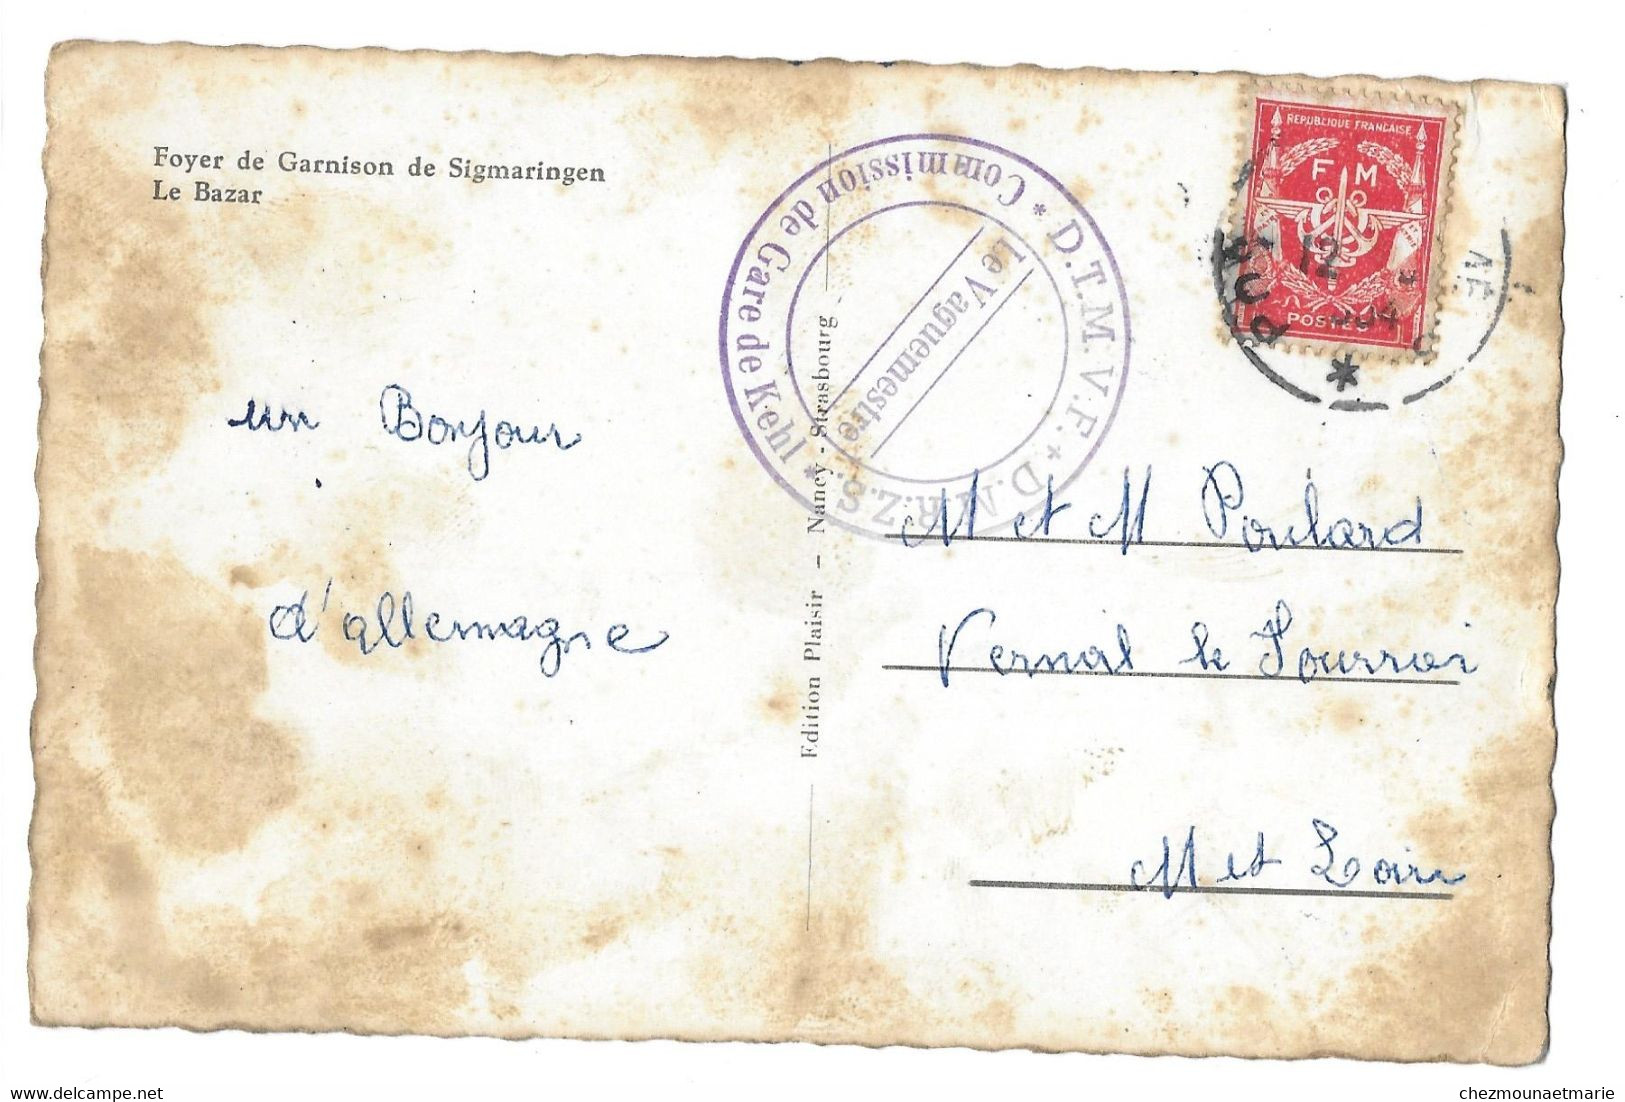 Foyer de Garnison de Sigmaringen
Le Bazar
un Bonjour
d'allemagne
Edition Plaisir — Nancy - Strasbourg
* D.T.M.V.F. * D.M.R.Z.S. *
Commission de Gare de Kehl
Le Vaguemestre
REPUBLIQUE FRANCAISE
F M
POSTES
12
M et M Poulard
Vernal le Fourrier
M et Loire
chezmounaetmarie